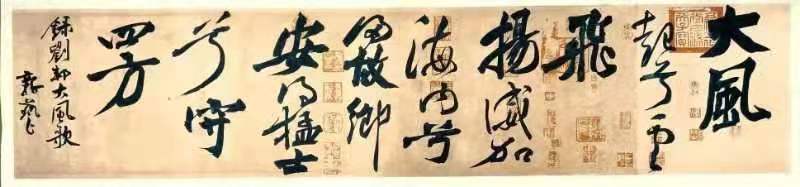 大風
起兮雲
飛
揚威加
海内兮
歸故鄉
安得猛士
兮守
四方
錄劉邦大風歌